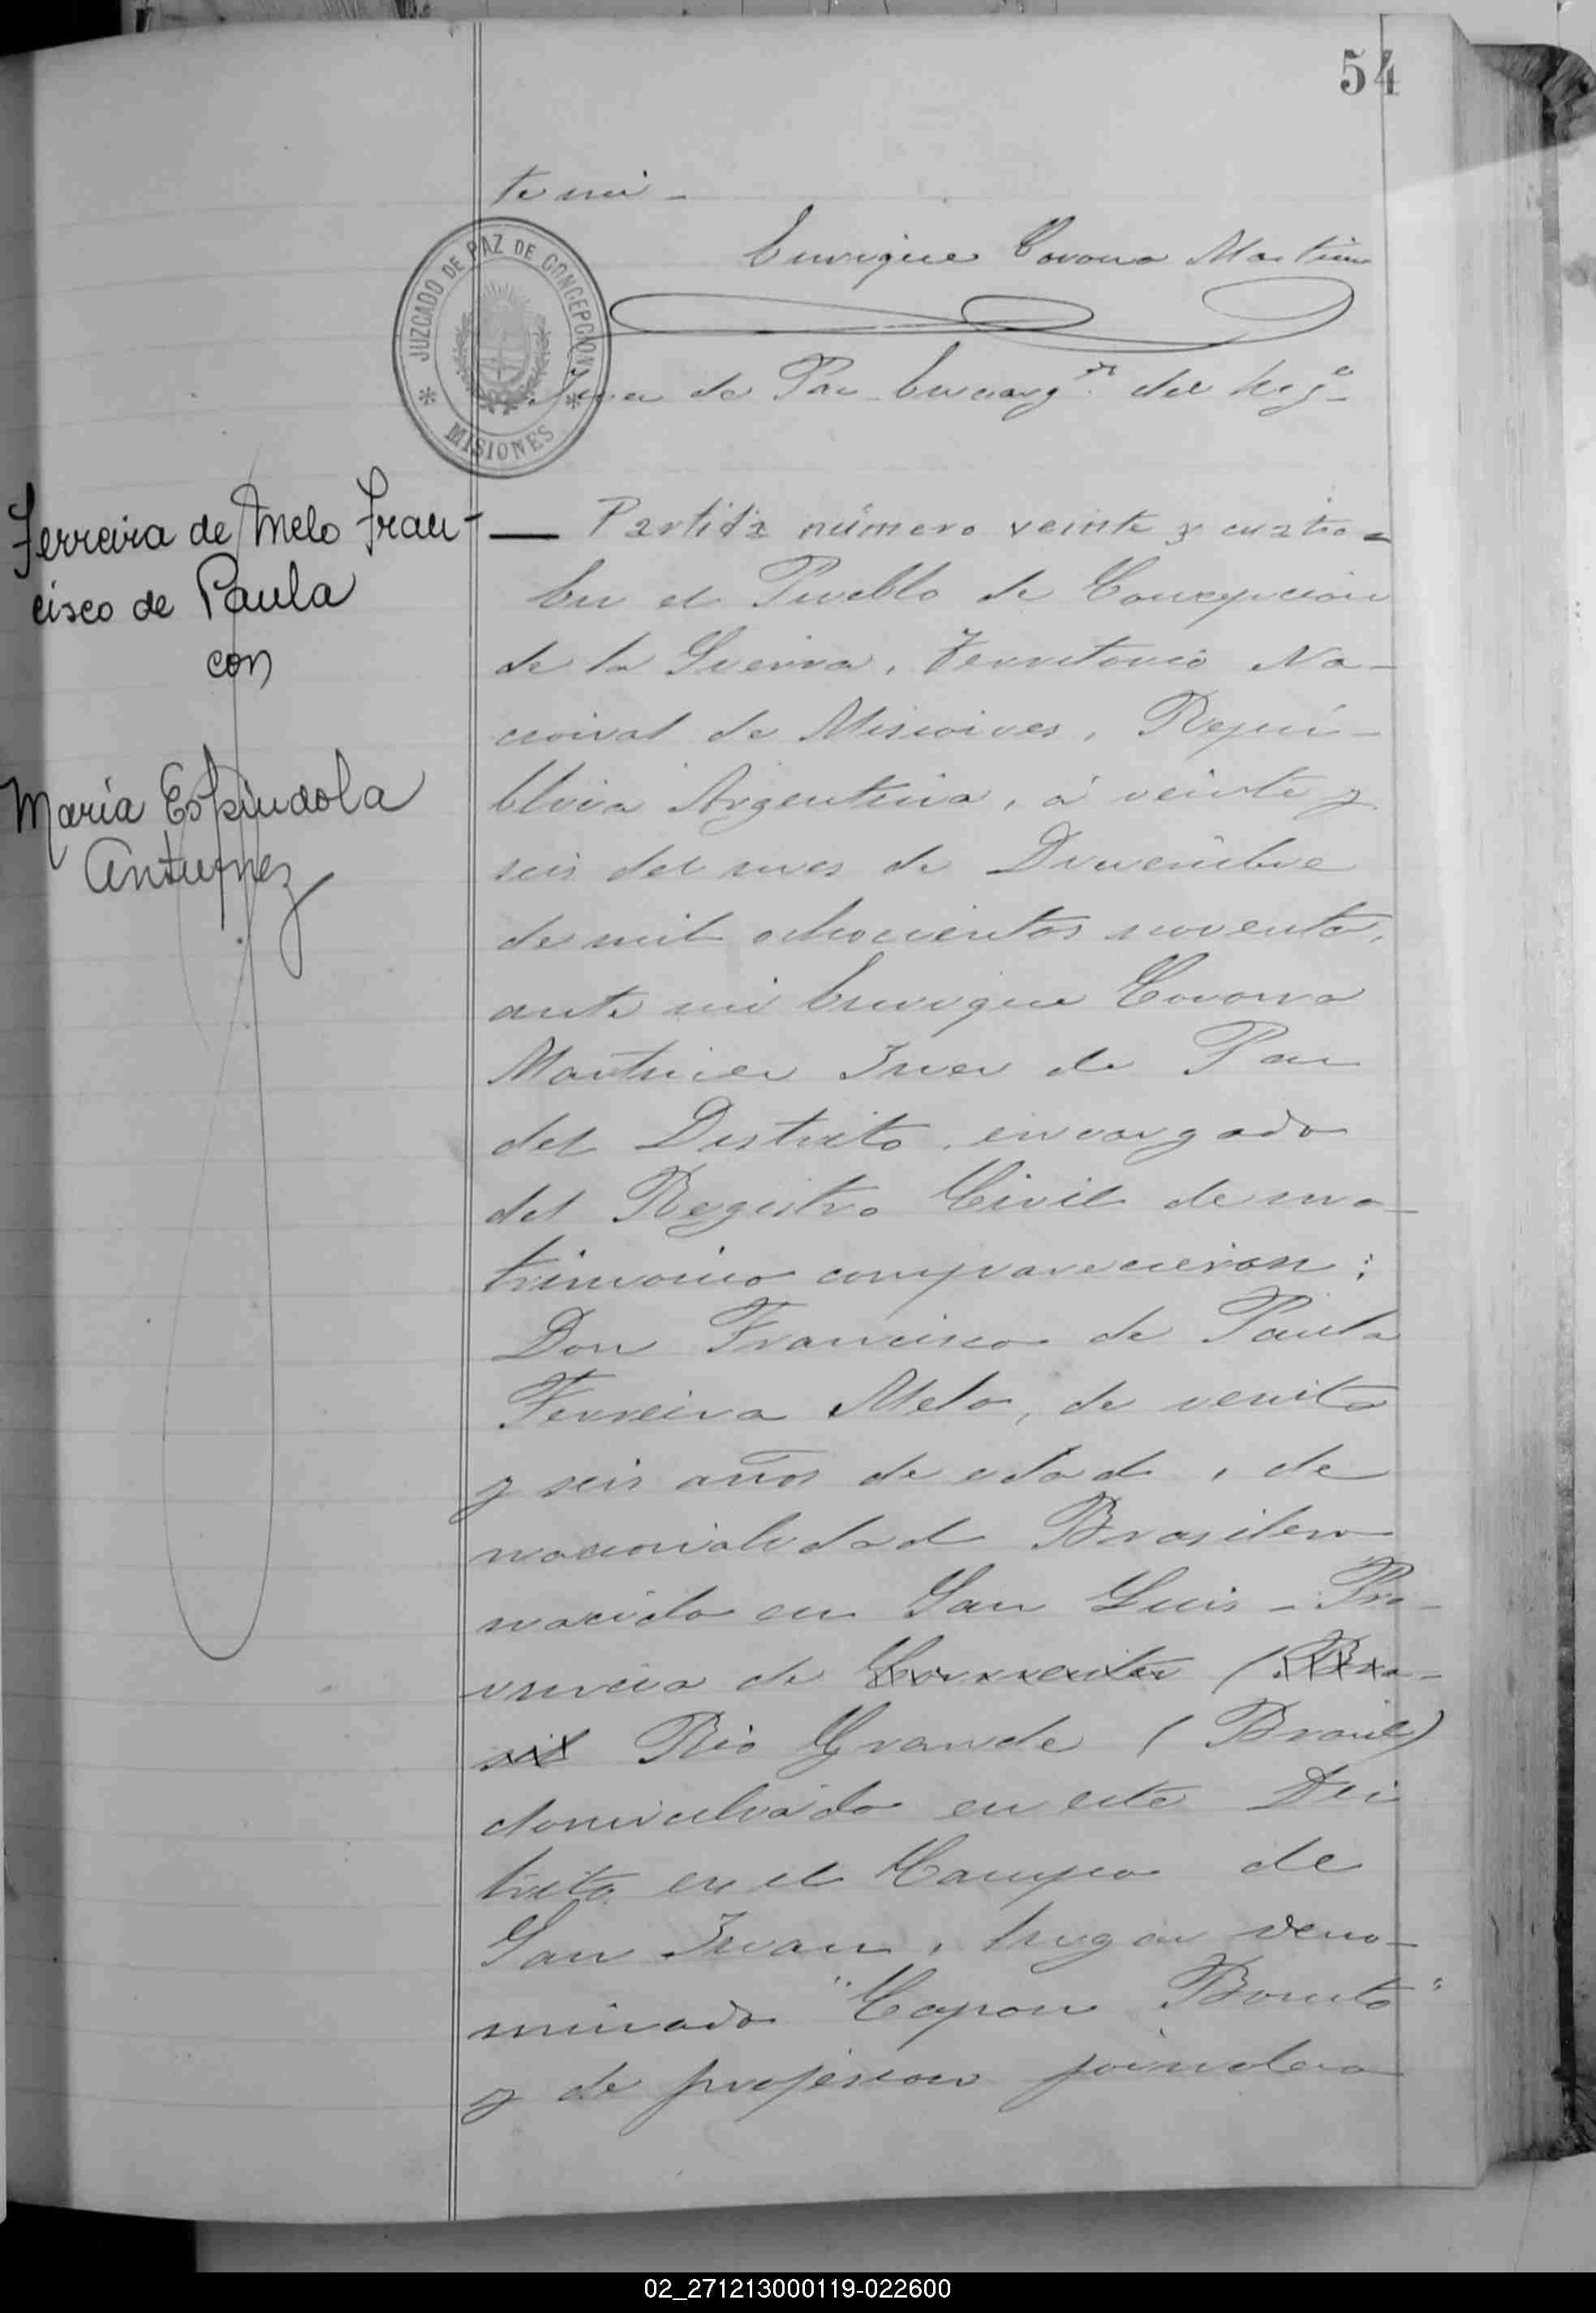 54
te mi -
Enrique Corona Martinez
JUZGADO DE PAZ DE CONCEPCION
MISIONES
Juez de Paz Encargdo del Rego
Ferreira de Melo Fran-
cisco de Paula
con
María Espíndola
Antunez
— Partida número veinte y cuatro -
En el Pueblo de Concepcion
de la Sierra, Territorio Na-
cional de Misiones, Repú-
blica Argentina, á veinte y
seis del mes de Diciembre
de mil ochocientos noventa,
ante mi Enrique Corona
Martinez Juez de Paz
del Distrito, encargado
del Registro Civil de ma-
trimonio comparecieron:
Don Francisco de Paula
Ferreira Melo, de veinte
y seis años de edad, de
nacionalidad Brasilera
nacido en San Luis - Pro-
vincia de Corrientes (Bra-
sil Rio Grande (Brasil)
domiciliado en este Dis
trito en el Campo de
San Juan, lugar deno-
minado "Capon Bonito"
y de profesion
02_271213000119-022600